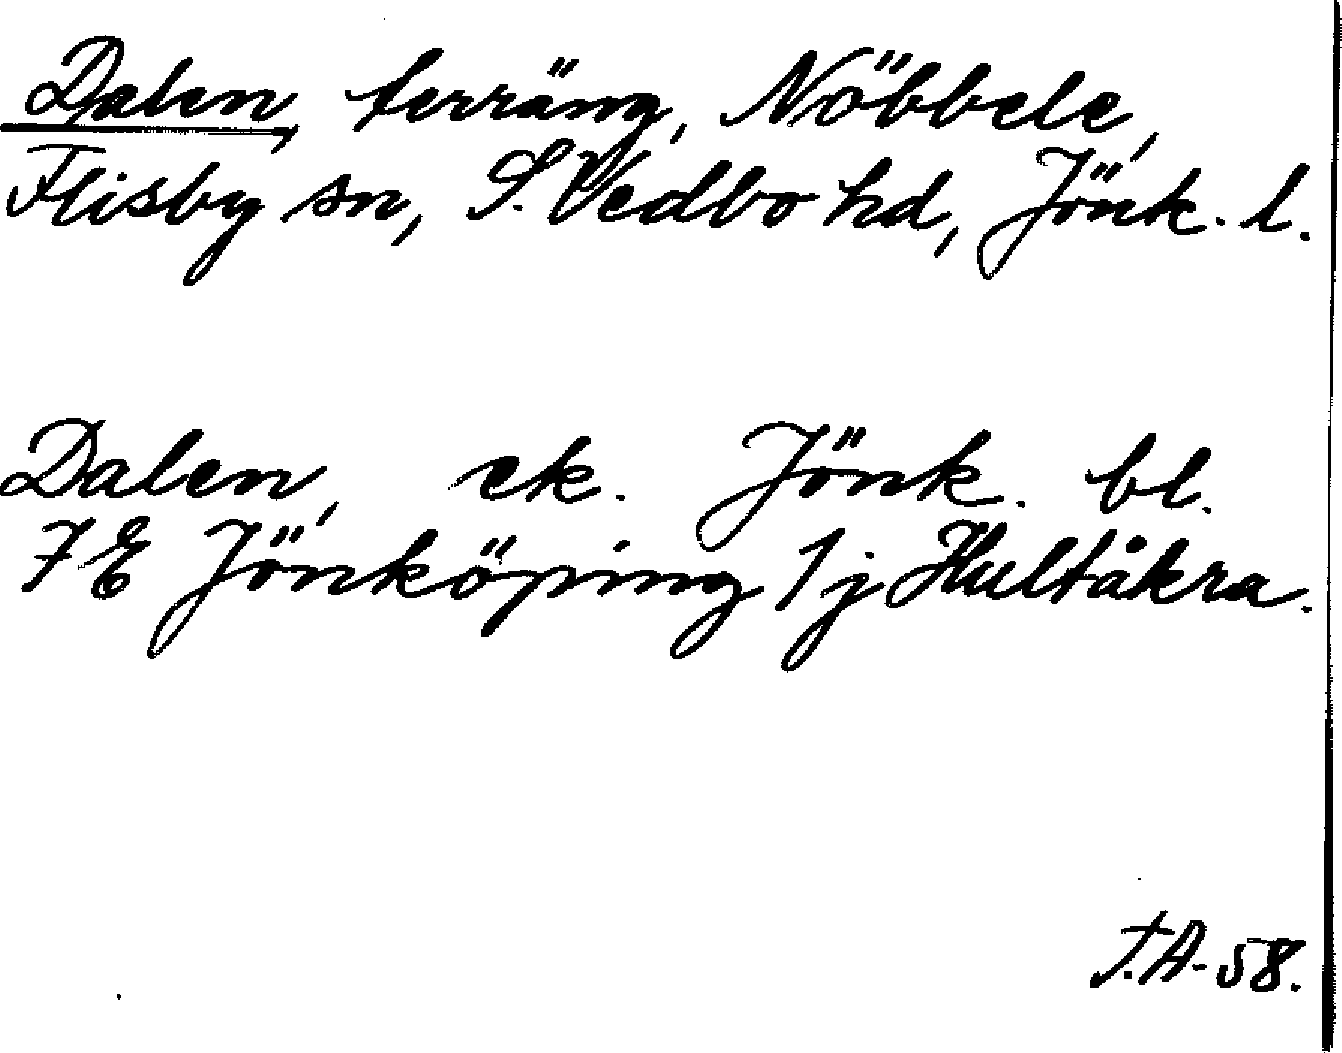 Dalen, terräng, Nöbbele,
Flisby sn, S. Vedbo hd, Jönk. l.
Dalen, ek. Jönk. bl.
7E Jönköping 1j Hultåkra.
T.A-58.